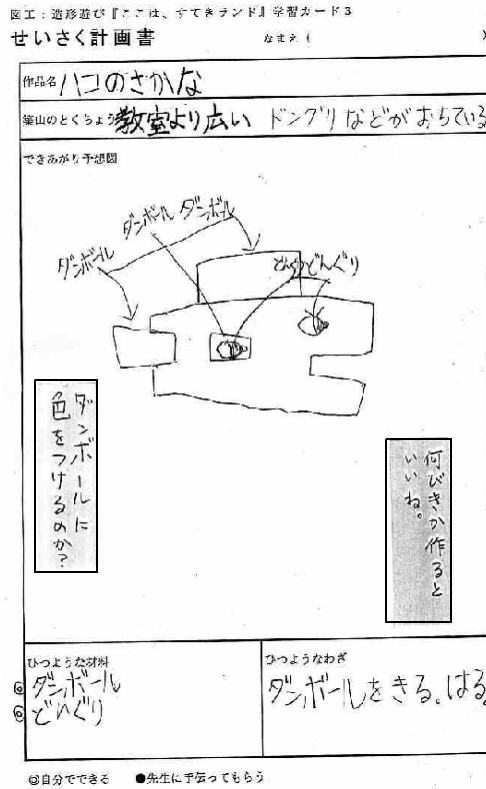 図工：造形遊び『ここは、すてきランド』学習カード３
せいさく計画書　なまえ（　　　）
作品名 ハコのさかな
築山のとくちょう 教室より広い　ドングリなどがおちている
できあがり予想図
ダンボール ダンボール
ダンボール
どんぐり どんぐり
ダンボールに
色をつけるのか？
何びきか作ると
いいね。
ひつような材料
◎ダンボール
◎どんぐり
ひつようなわざ
ダンボールをきる。はる。
◎自分でできる　●先生に手伝ってもらう